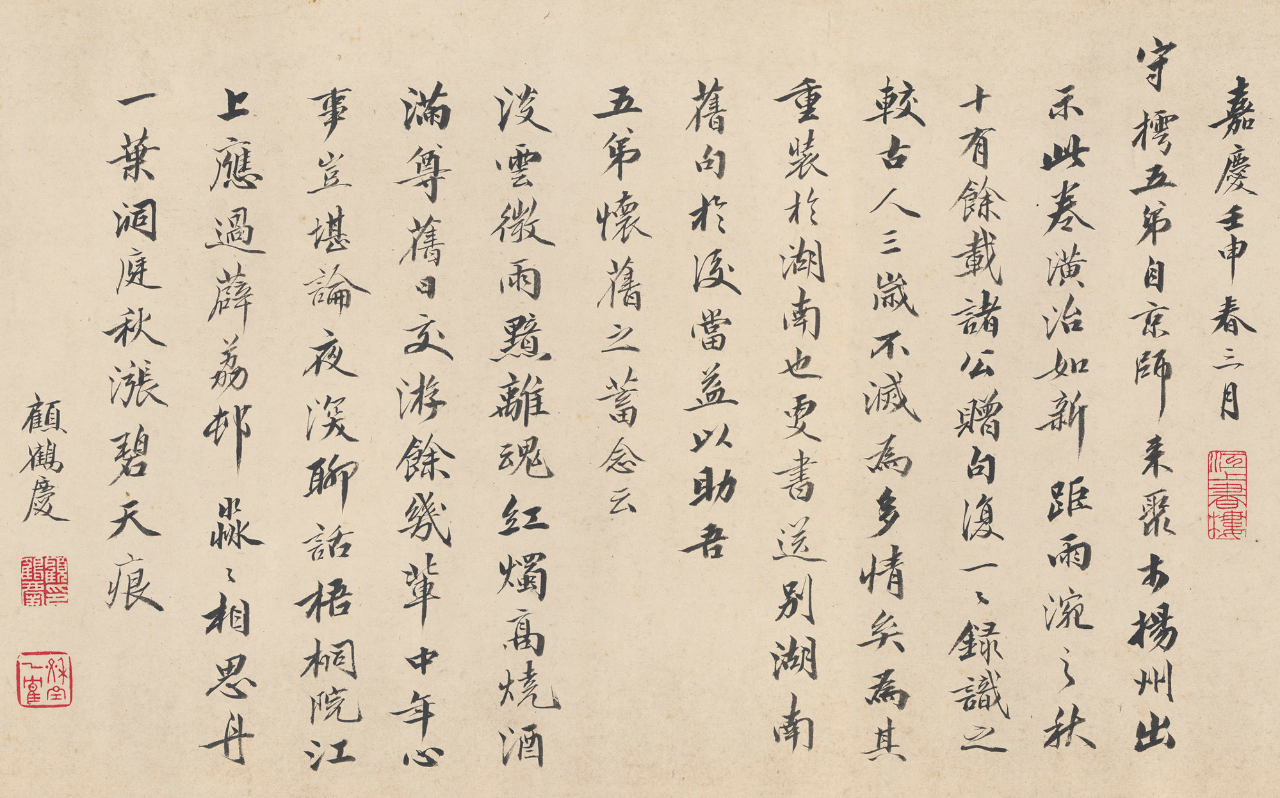 嘉慶壬申春三月
守樗五弟自京師来聚于揚州出
示此卷潢治如新距雨窗之秋
十有餘載諸公贈句復一〻録識之
較古人三歲不滅為多情矣為其
重裝於湖南也更書送別湖南
舊句於後當益以助吾
五弟懷舊之蓄念云
淡雲微雨黯離魂紅燭高燒酒
滿尊舊日交游餘幾輩中年心
事豈堪論夜深聊話梧桐院江
上應過薜荔邨淼〻相思丹
一葉洞庭秋漲碧天痕
顧鶴慶